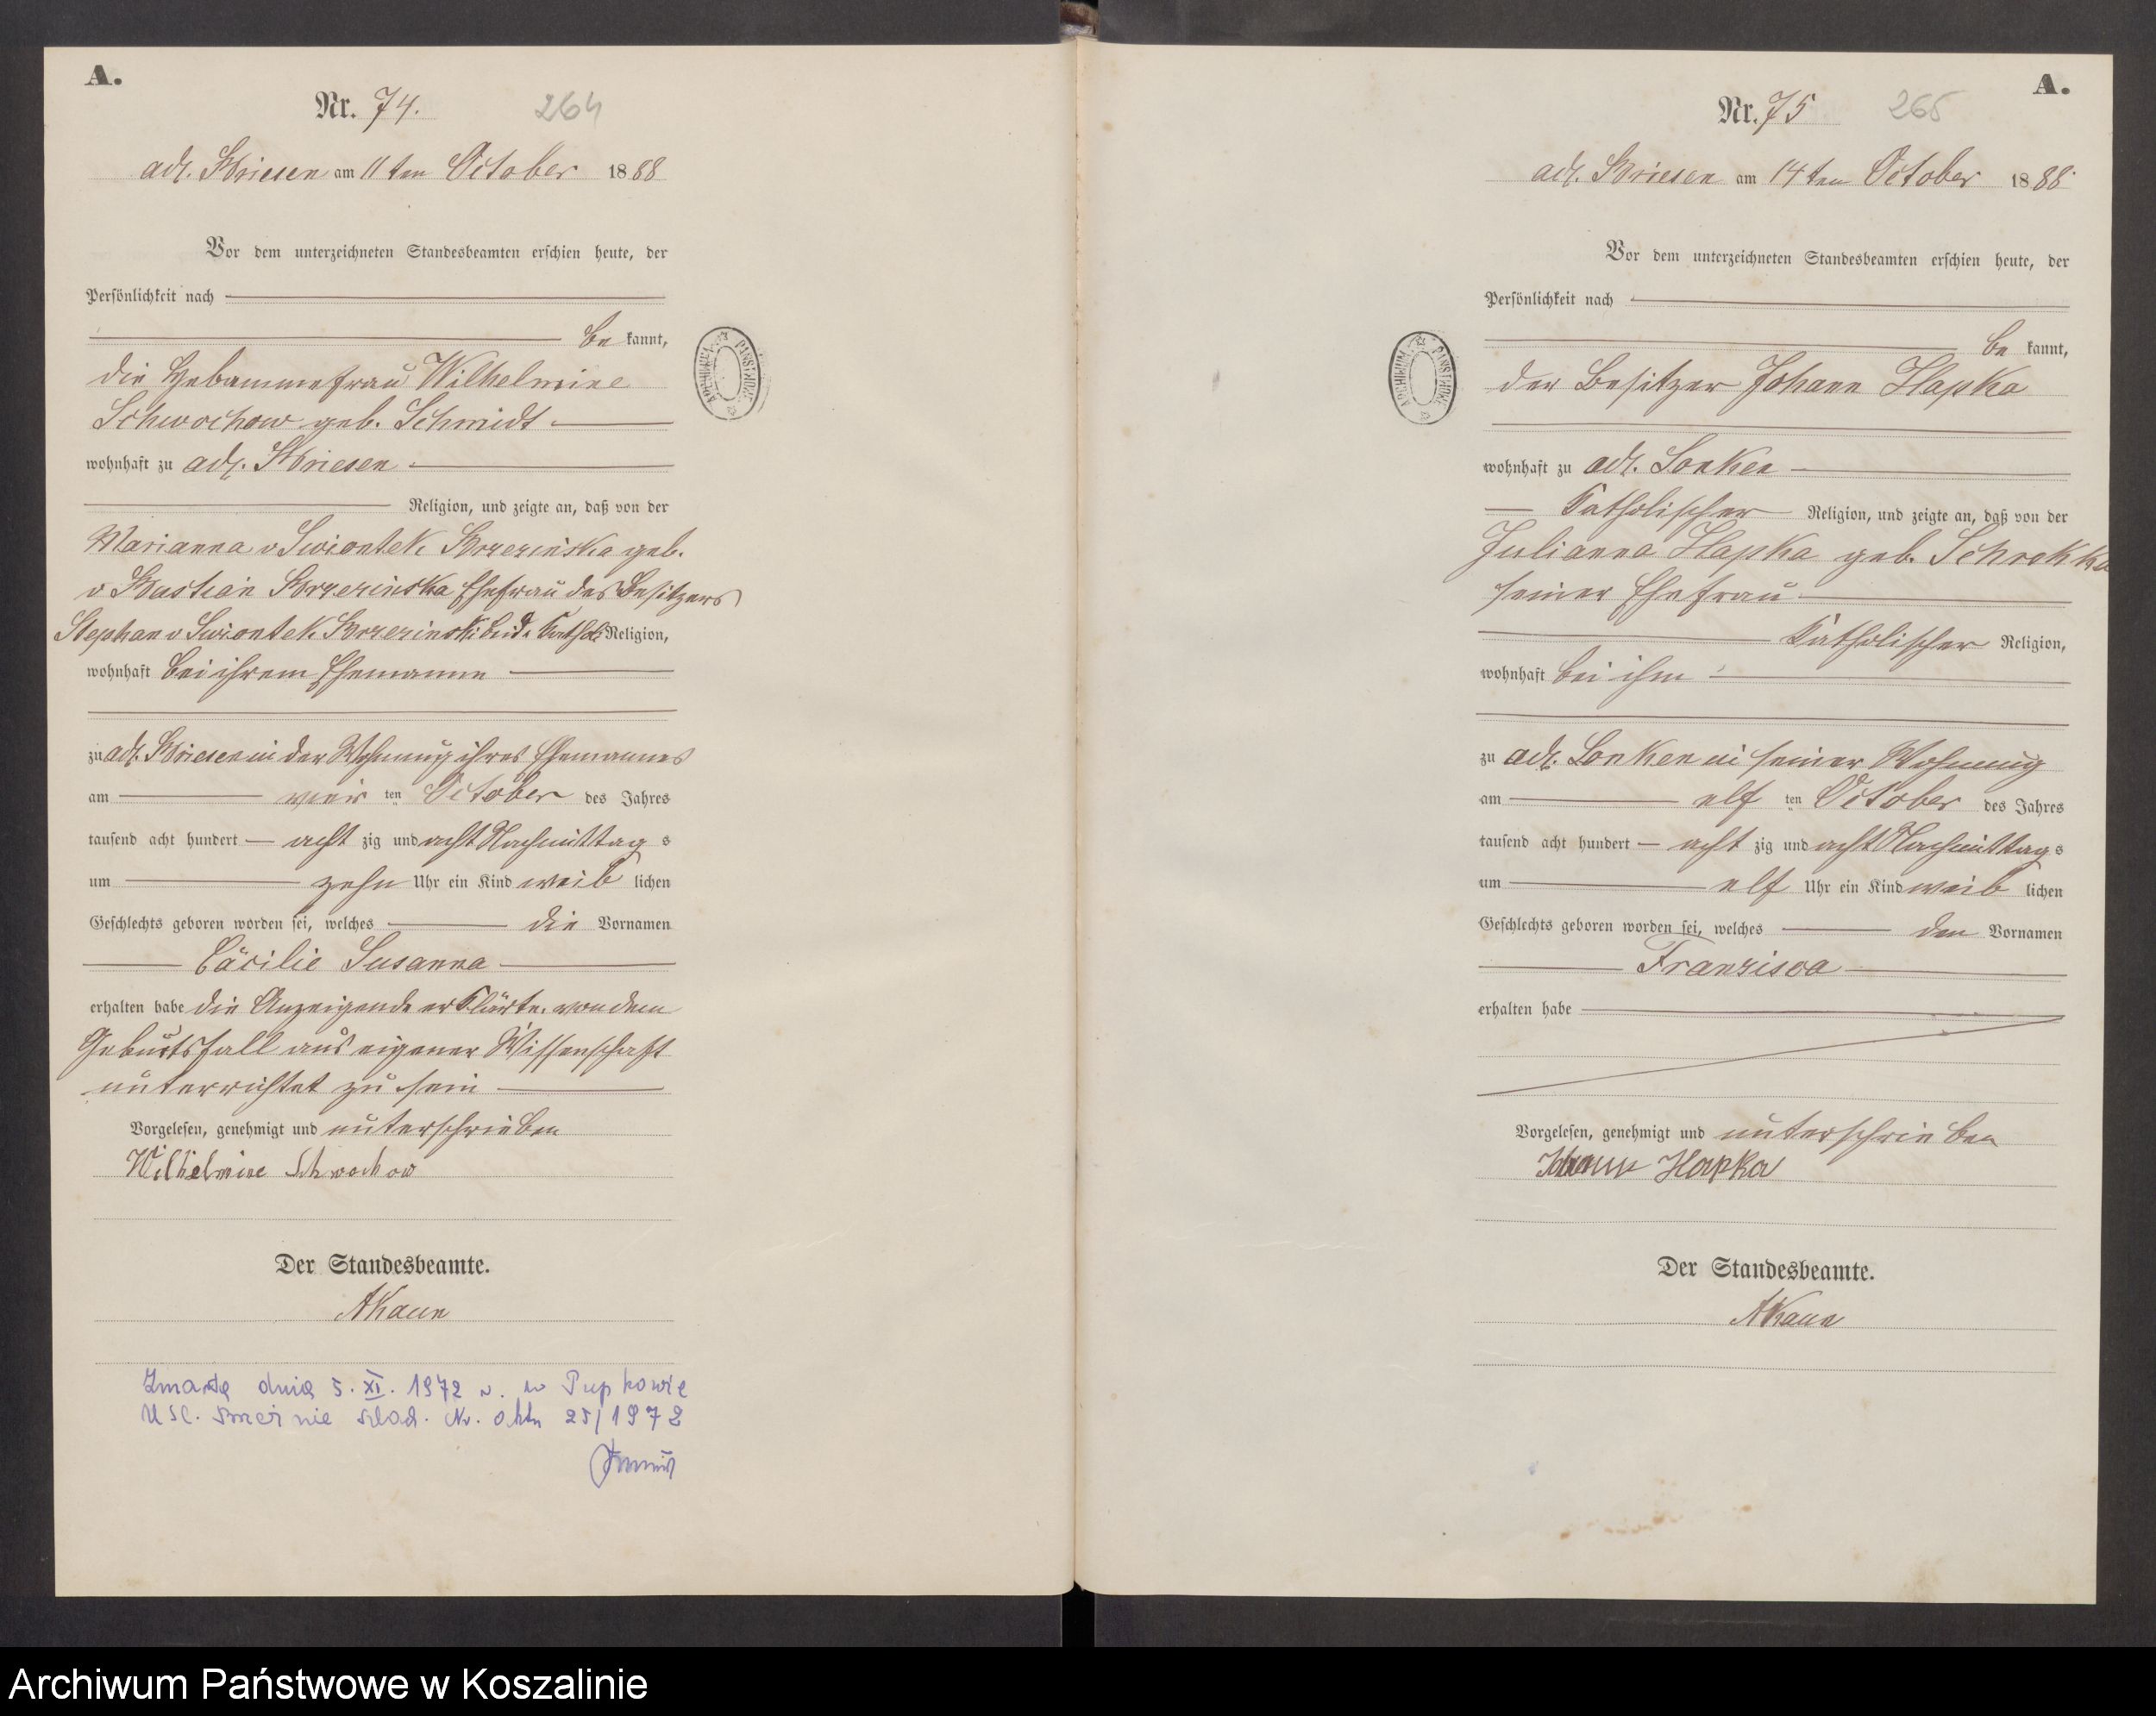 A.
Nr. 74. 264
adl. Briesen am 11ten October 1888
Vor dem unterzeichneten Standesbeamten erschien heute, der
Persönlichkeit nach
be kannt,
die Hebammefrau Wilhelmine
Schwochow geb. Schmidt
wohnhaft zu adl. Briesen
Religion, und zeigte an, daß von der
Marianna v Swiontek Brzezinska geb.
v Bastian Brzezinska Ehefrau des Besitzers
Stephan v Swiontek Brzezinski beide Kathol. Religion,
wohnhaft bei ihrem Ehemanne
zu adl. Briesen in der Wohnung ihres Ehemannes
am vier ten October des Jahres
tausend acht hundert acht zig und acht Nachmittag s
um zehn Uhr ein Kind weib lichen
Geschlechts geboren worden sei, welches die Vornamen
Cäcilie Susanna
erhalten habe die Anzeigende erklärte, von dem
Geburtsfall aus eigener Wissenschaft
unterrichtet zu sein
Vorgelesen, genehmigt und unterschrieben
Wilhelmine Schwochow
Der Standesbeamte.
AKaun
Zmarła dnia 5. XI. 1972 r. w Pupkowie
USC. nie Nr. aktu 25/1972
A.
Nr. 75 265
adl. Briesen am 14ten October 1888
Vor dem unterzeichneten Standesbeamten erschien heute, der
Persönlichkeit nach
be kannt,
der Besitzer Johann Hapka
wohnhaft zu adl. Lonken
Katholischer Religion, und zeigte an, daß von der
Julianna Hapka geb. Schrekka
seiner Ehefrau
Katholischer Religion,
wohnhaft bei ihm
zu adl. Lonken in seiner Wohnung
am elf ten October des Jahres
tausend acht hundert acht zig und acht Nachmittag s
um elf Uhr ein Kind weib lichen
Geschlechts geboren worden sei, welches den Vornamen
Franzisca
erhalten habe
Vorgelesen, genehmigt und unterschrieben
Johann Hapka
Der Standesbeamte.
AKaun
Archiwum Państwowe w Koszalinie